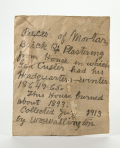 Pieces of Mortar,
Brick & Plastering
from House in which
Gen Custer had his
Headquarters - winter
1864-65.
This House burned
about 1899.
Collected 1913
by